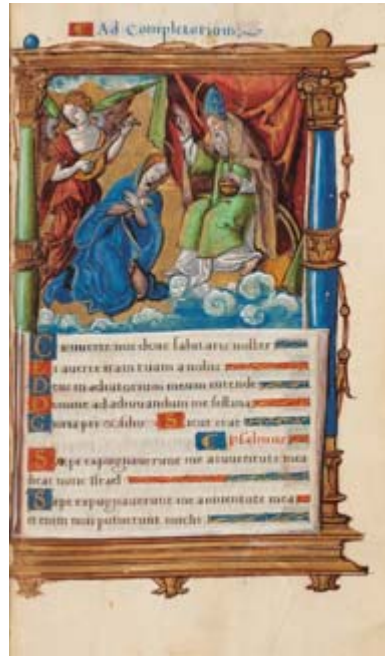 Ad Completorium
Conuerte nos deus salutaris noster
Et auerte iram tuam a nobis
Deus in adiutorium meum intende
Domine ad adiuuandum me festina
Gloria patri et filio Sicut erat
Psalmus
Sæpe expugnauerunt me a iuuentute mea
dicat nunc Israel
Sæpe expugnauerunt me a iuuentute mea
etenim non potuerunt michi